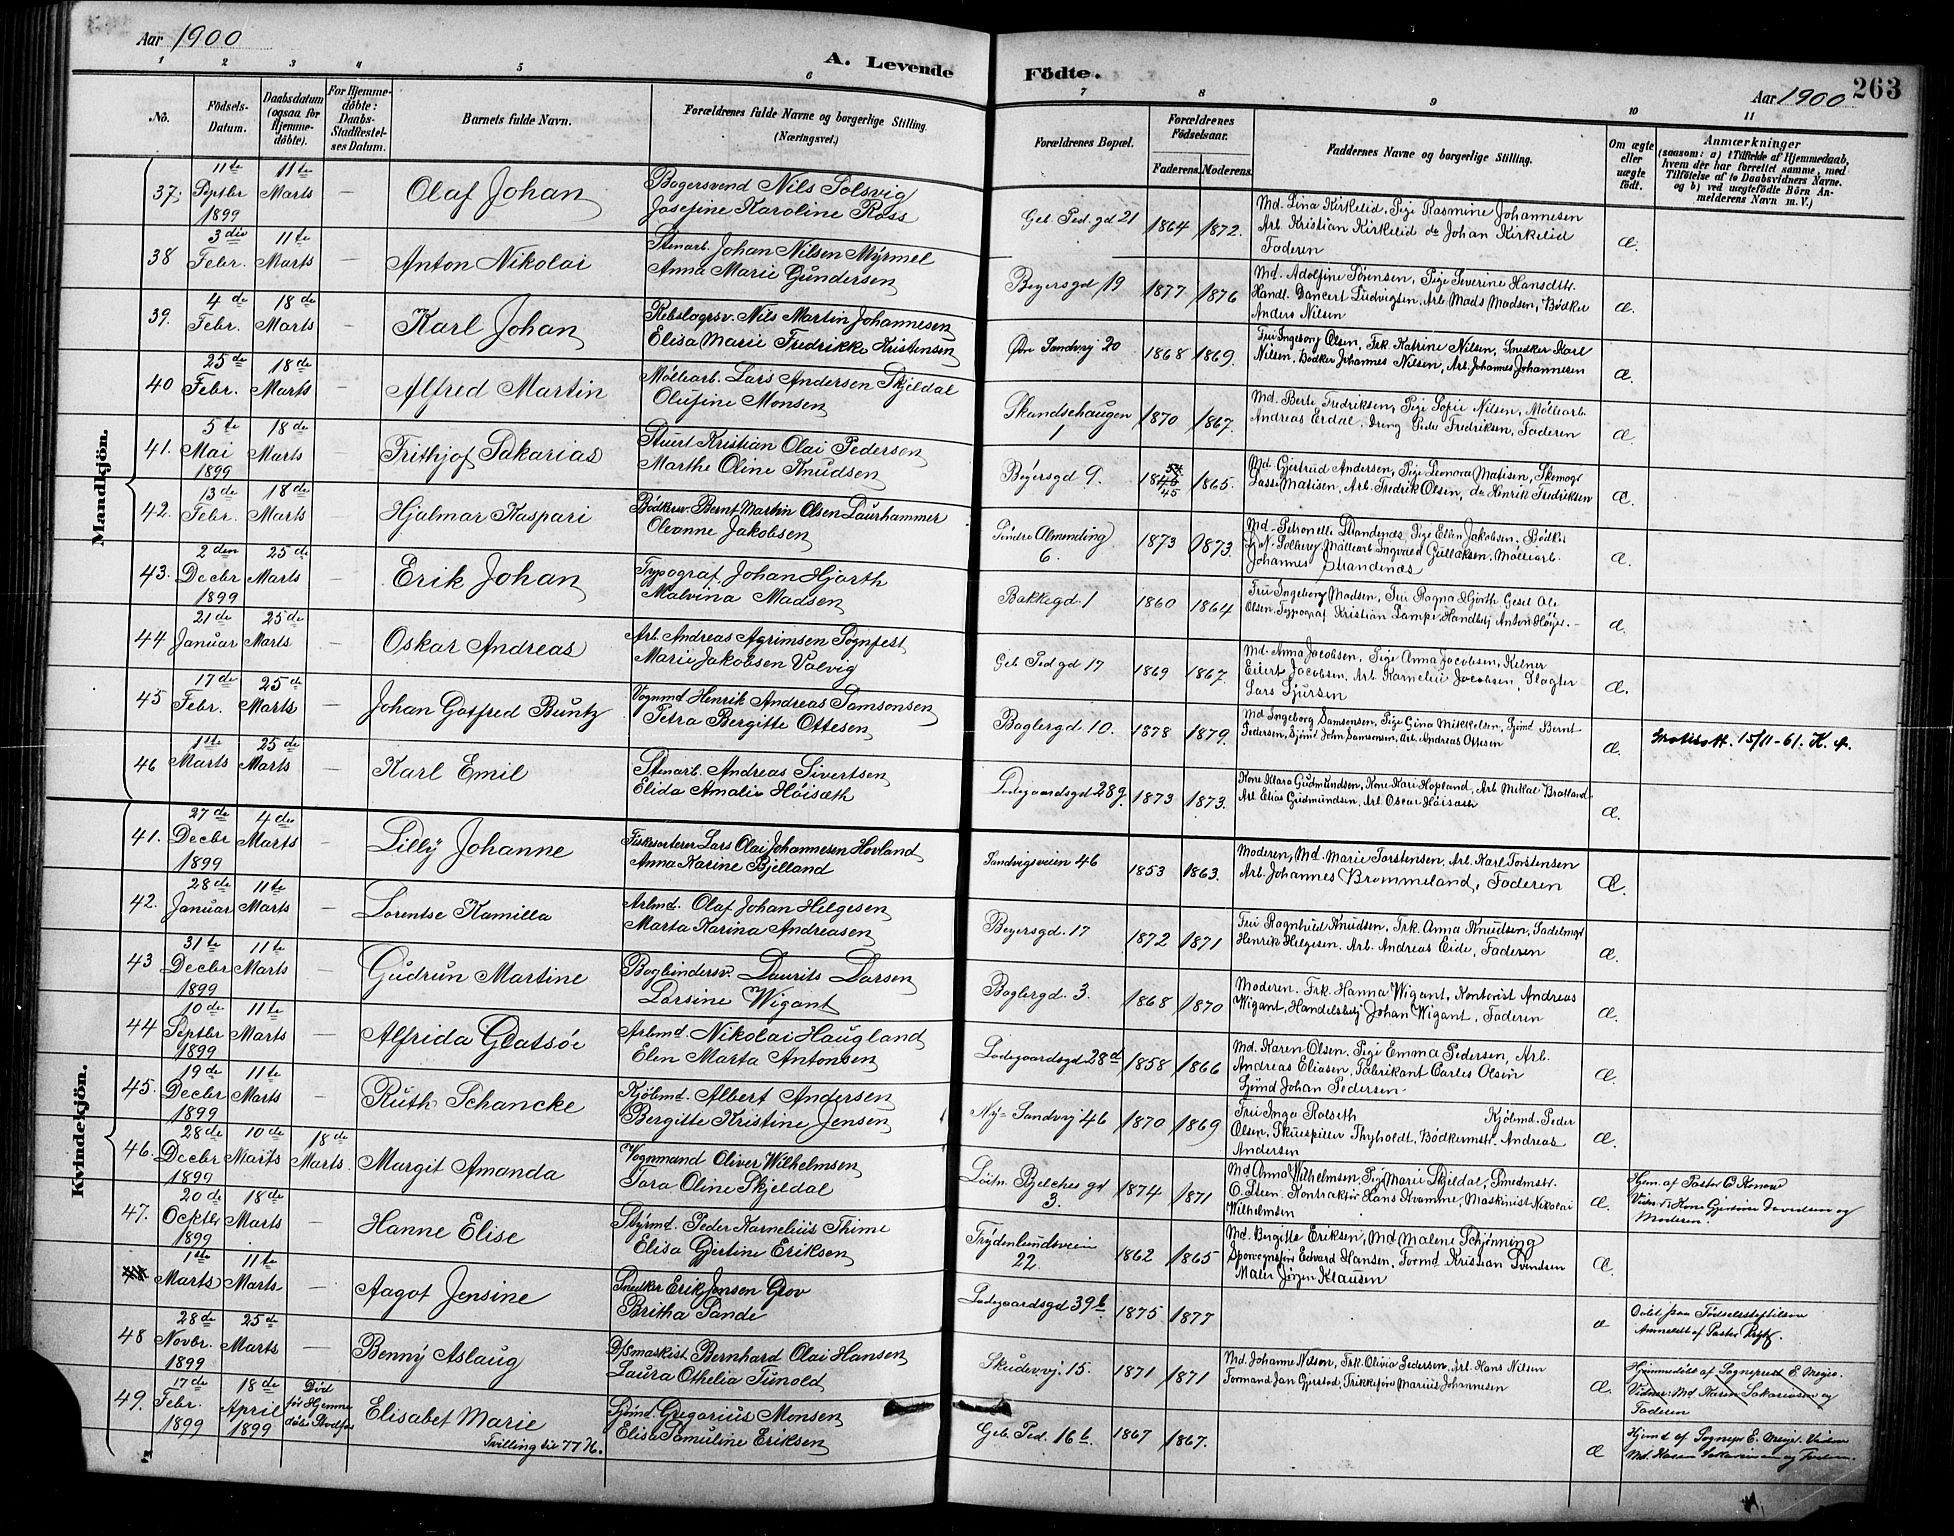 Aar 1900
A. Levende Födte.
Aar 1900
263
1 2 3 4 5 6 7 8 9 10 11
No.
Födsels-Datum.
Daabsdatum (ogsaa for Hjemme-döbte).
For Hjemme-döbte: Daabs-Stadfæstel-ses Datum.
Barnets fulde Navn.
Forældrenes fulde Navne og borgerlige Stilling.
(Næringsvei.)
Forældrenes Bopæl.
Forældrenes Födselsaar.
Faderens. Moderens.
Faddernes Navne og borgerlige Stilling.
Om ægte eller uægte födt.
Anmærkninger
(saasom: a) i Tilfælde af Hjemmedaab, hvem der har forrettet samme, med Tilföielse af to Daabsvidners Navne, og b) ved uægtefödte Börn Anmelderens Navn m. V.)
Mandkjön.
37. 11te Septbr 1899 11te Marts — Olaf Johan
Bogersvend Nils Solsvig
Josefine Karoline Rass
Geb Ped. gd 21 1864 1872.
Md. Lina Kirkelid, Pige Rasmine Johannesen
Arb. Kristian Kirkelid do Johan Kirkelid
Faderen
Æ.
38 3die Febr. 11te Marts — Anton Nikolai
Stenarb. Johan Nilsen Myrmel
Anna Marie Gundersen
Beyersgd 19 1877 1876
Md. Adolfine Sörensen, Pige Severine Hansdtr.
Handl. Dancert Ludvigsen, Arb Mads Madsen, Bödker
Anders Nilsen
Æ.
39. 4de Febr. 18de Marts — Karl Johan
Rebslagersv. Nils Martin Johannesen
Elisa Marie Fredrikke Kristensen
Øvre Sandvvj 20 1868 1869.
Fru Ingeborg Olsen, Frk. Katrine Nilsen, Snedker Karl
Nilsen, Bödker Johannes Nilsen, Arb. Johannes Johannesen
Æ.
40 25de Febr. 18de Marts — Alfred Martin
Möllearb. Lars Andersen Skjeldal
Olufine Monsen
Skandsehaugen 1 1870 1867.
Md. Berte Fredriksen, Pige Sofie Nilsen, Möllearb.
Andreas Erdal, Dreng Peder Fredriksen, Faderen
Æ.
41. 5te Mai 1899 18de Marts — Frithjof Sakarias
Stuert Kristian Olai Pedersen
Marthe Oline Knudsen
Beyersgd 9. 1865.
Md. Gjertrud Andersen, Pige Leonora Matisen, Skomagr
Lasse Matisen, Arb. Fredrik Olsen, do Hinrik Fredriksen
Æ.
42. 13de Febr. 18de Marts — Hjalmar Kaspari
Bödkersv. Bernt Martin Olsen Laurhammer
Oleanne Jakobsen
Söndre Almending 6. 1873 1873.
Md. Petronelle Strandenæs, Pige Ellen Jakobsen, Bödker
Solberg, Möllearb Ingvald Gullaksen, Möllearb.
Johannes Strandenæs
Æ.
43. 2den Decbr 1899 25de Marts — Erik Johan
Typograf Johan Hjorth
Malvina Madsen
Bakkegd. 1 1860 1864
Fru Ingeborg Madsen, Fru Ragna Hjorth, Gesel Ole
Olsen, Typograf Kristian Lampe, Handlbtj Anton Höyer.
Æ.
44 21de Januar 25de Marts — Oskar Andreas
Arb. Andreas Agrimsen Sognfest
Marie Jakobsen Valvig
Geb Ped gd 17 1869 1867.
Md. Anna Jacobsen, Pige Anna Jacobsen, Kelner
Eilert Jacobsen, Arb. Karneliu Jacobsen, Slagter
Lars Sjursen
Æ.
45 17de Febr. 25de Marts — Johan Gotfred Buntz
Vognmd Henrik Andreas Samsonsen
Petra Bergitte Ottesen
Baglergd. 10. 1878 1879.
Md Ingeborg Samsonsen, Pige Gina Mikkelsen, Sjömd Bernt
Pedersen, Sjömd John Samsonsen, Arb. Andreas Ottesen
Æ.
15/11-61. K.
46 1ste Marts 25de Marts — Karl Emil
Stenarb. Andreas Sivertsen
Elida Amalie Höisæth
Ladegaardsgd 28g. 1873 1873.
Kone Klara Gudmundsen, Kone Kari Hopland, Arb. Mikal Bratland
Arb Elias Gudmundsen, Arb. Oscar Höisæth
Æ.
Kvindekjön.
41. 27de Decbr 1899 4de Marts — Lilly Johanne
Fiskesorterer Lars Olai Johannesen Hovland
Anna Karine Bjelland
Sandvigsveien 46 1853 1863.
Moderen, Md. Marie Torstensen, Arb. Karl Torstensen
Arb. Johannes Brommeland, Faderen
Æ.
42. 28de Januar 11te Marts — Lorentse Kamilla
Arbmd. Olaf Johan Helgesen
Marta Karina Andreasen
Beyersgd. 17 1872 1871
Fru Ragnhild Knudsen, Frk. Anna Knudsen, Sadelmgr
Henrik Helgesen, Arb. Andreas Eide, Faderen
Æ.
43 31te Decbr 1899 11te Marts — Gudrun Martine
Bogbindersv. Laurits Larsen
Larsine Wigant
Baglergd. 3. 1868 1870
Moderen. Frk. Hanna Wigant, Kontorist Andreas
Wigant, Handelsbtj Johan Wigant, Faderen
Æ.
44 10de Septbr 1899 11te Marts — Alfrida Glatsöe
Arbmd. Nikolai Haugland
Elen Marta Antonsen
Ladegaardsgd 28d 1858 1866
Md. Karen Olsen, Pige Emma Pedersen, Arb.
Andreas Eliasen, Fabrikant Carles Olsen
Sjömd Johan Pedersen
Æ.
45. 19de Decbr 1899 11te Marts — Ruth Schancke
Kjölmd. Albert Andersen
Bergitte Kristine Jensen
Ny-Sandvvj 46 1870 1869
Fru Inga Rolseth Kjölmd. Peder
Olsen, Skuespiller Thyholdt, Bödkermstr. Andreas
Andersen
Æ.
46. 28de Decbr 1899 10de Marts 18de Marts. Margit Amanda
Vognmand Oliver Wilhelmsen
Tora Oline Skjeldal
Löitn. Bjelches gd 3. 1874 1871
Md Anna Wilhelmsen, Pige Marie Skjeldal, Smedmstr.
O. Steen. Kontraktör Hans Kvamme, Maskinist Nikolai
Wilhelmsen
Æ.
Hjem. af Pastor C Konow
Vidner: Kone Gjertine Davidsen og
Moderen.
47. 20de Octbr 1899 18de Marts — Hanne Elise
Styrmd. Peder Karnelius Thime
Elisa Gjertine Eriksen
Frydenlundsveien 22. 1862 1865
Md. Birgitte Eriksen, Md Malene Schjönning
Sporvognsför Edvard Hansen, Formd Kristian Svendsen
Maler Jörgen Klausen
Æ.
1ste Marts 11te Marts — Aagot Jensine
Snedker Erik Jensen Grov
Britha Sande
Ladegaardsgd 39b 1875 1877
æ
Anmeldt af Pastor
48 28de Novbr. 1899 25de Marts — Benny Aslaug
D/Smaskist Bernhard Olai Hansen
Laura Othelia Tunold
Skudevvj. 15. 1871 1871
Md. Johanne Nilsen, Frk. Olivia Pedersen, Arb. Hans Nilsen
Formand Jan Gjerstad, Trikkeförer Marius Johannesen
Æ.
Hjemmedöbt af Sogneprest E. Meyer.
Vidner: Md Karen Sakariassen og
Faderen
49. 17de Febr. 1899 18de April 1899 Död för Hjemmedaabs Stadfæs Elisabet Marie
Tvilling til 77 N.
Sjömd. Gregorius Monsen
Elisa Samuline Eriksen
Geb. Ped. 16b. 1867 1867.
Æ
Hjemd af Sognepr E. Meyer. Vidner
Md. Karen Sakariassen og Faderen.